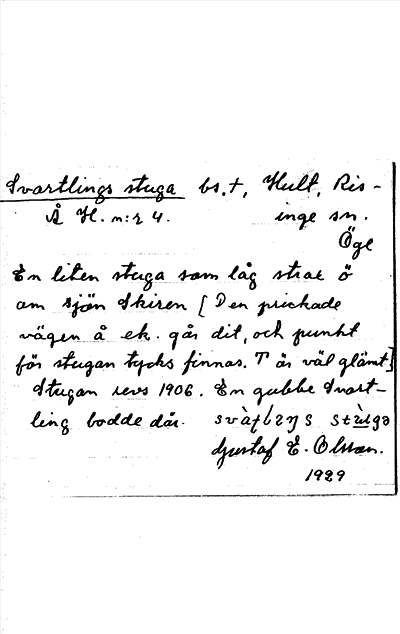 Svartlings stuga bs.†, Hult, Ris-
Å H. n:r 4. inge sn.
Ögl
En liten stuga som låg strax ö
om sjön Skiren [Den prickade
vägen å ek. går dit, och punkt
för stugan tycks finnas. T är väl glömt]
Stugan revs 1906. En gubbe Svart-
ling bodde där.
Gustaf E. Olsson.
1929